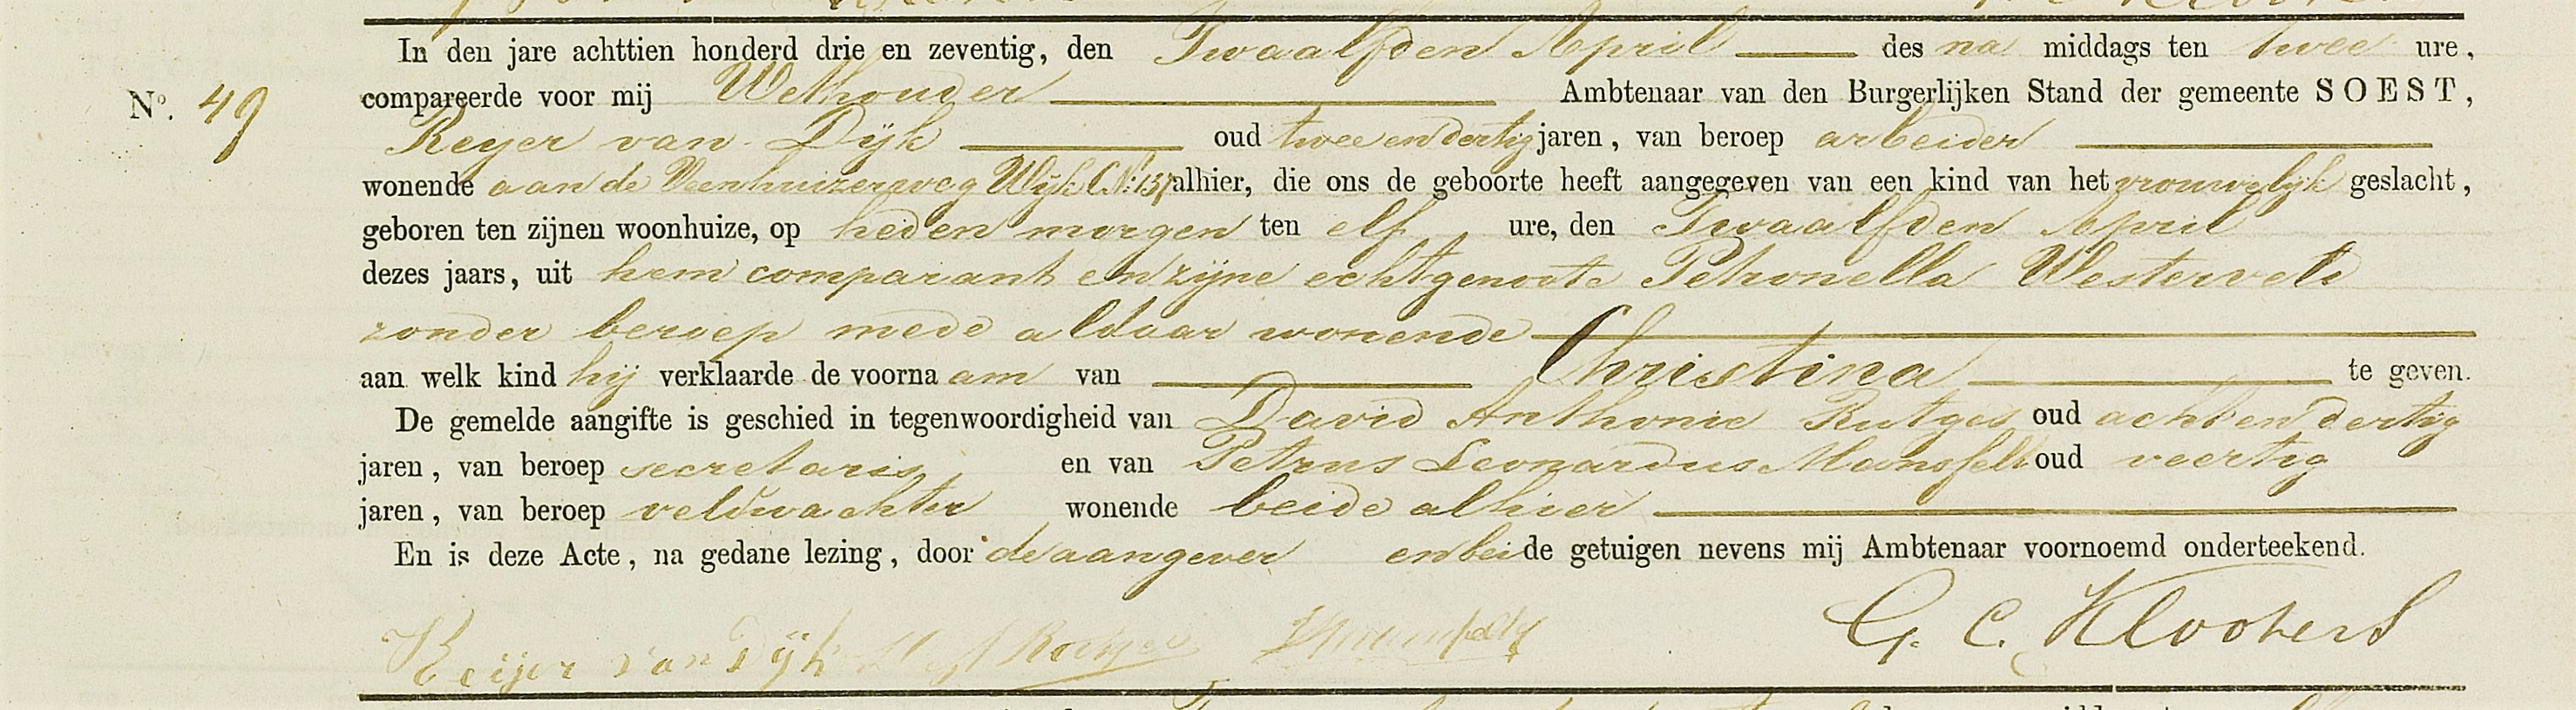 In den jare achttien honderd drie en zeventig, den Twaalfden April des na middags ten twee ure,
No. 49 compareerde voor mij Wethouder Ambtenaar van den Burgerlijken Stand der gemeente SOEST,
Reyer van Dijk oud twee en dertig jaren, van beroep arbeider
wonende aan de Veenhuizerweg Wijk C No: 137 alhier, die ons de geboorte heeft aangegeven van een kind van het vrouwelijk geslacht,
geboren ten zijnen woonhuize, op heden morgen ten elf ure, den Twaalfden April
dezes jaars, uit hem comparant en zijne echtgenoote Petronella Westerveld
zonder beroep mede aldaar wonende
aan welk kind hij verklaarde de voornaam van Christina te geven.
De gemelde aangifte is geschied in tegenwoordigheid van David Anthonie Rutges oud acht en dertig
jaren, van beroep secretaris en van Petrus Leonardus Mansfelt oud veertig
jaren, van beroep veldwachter wonende beide alhier
En is deze Acte, na gedane lezing, door de aangever en beide getuigen nevens mij Ambtenaar voornoemd onderteekend.
Reijer van Dijk G. C. Kloosters